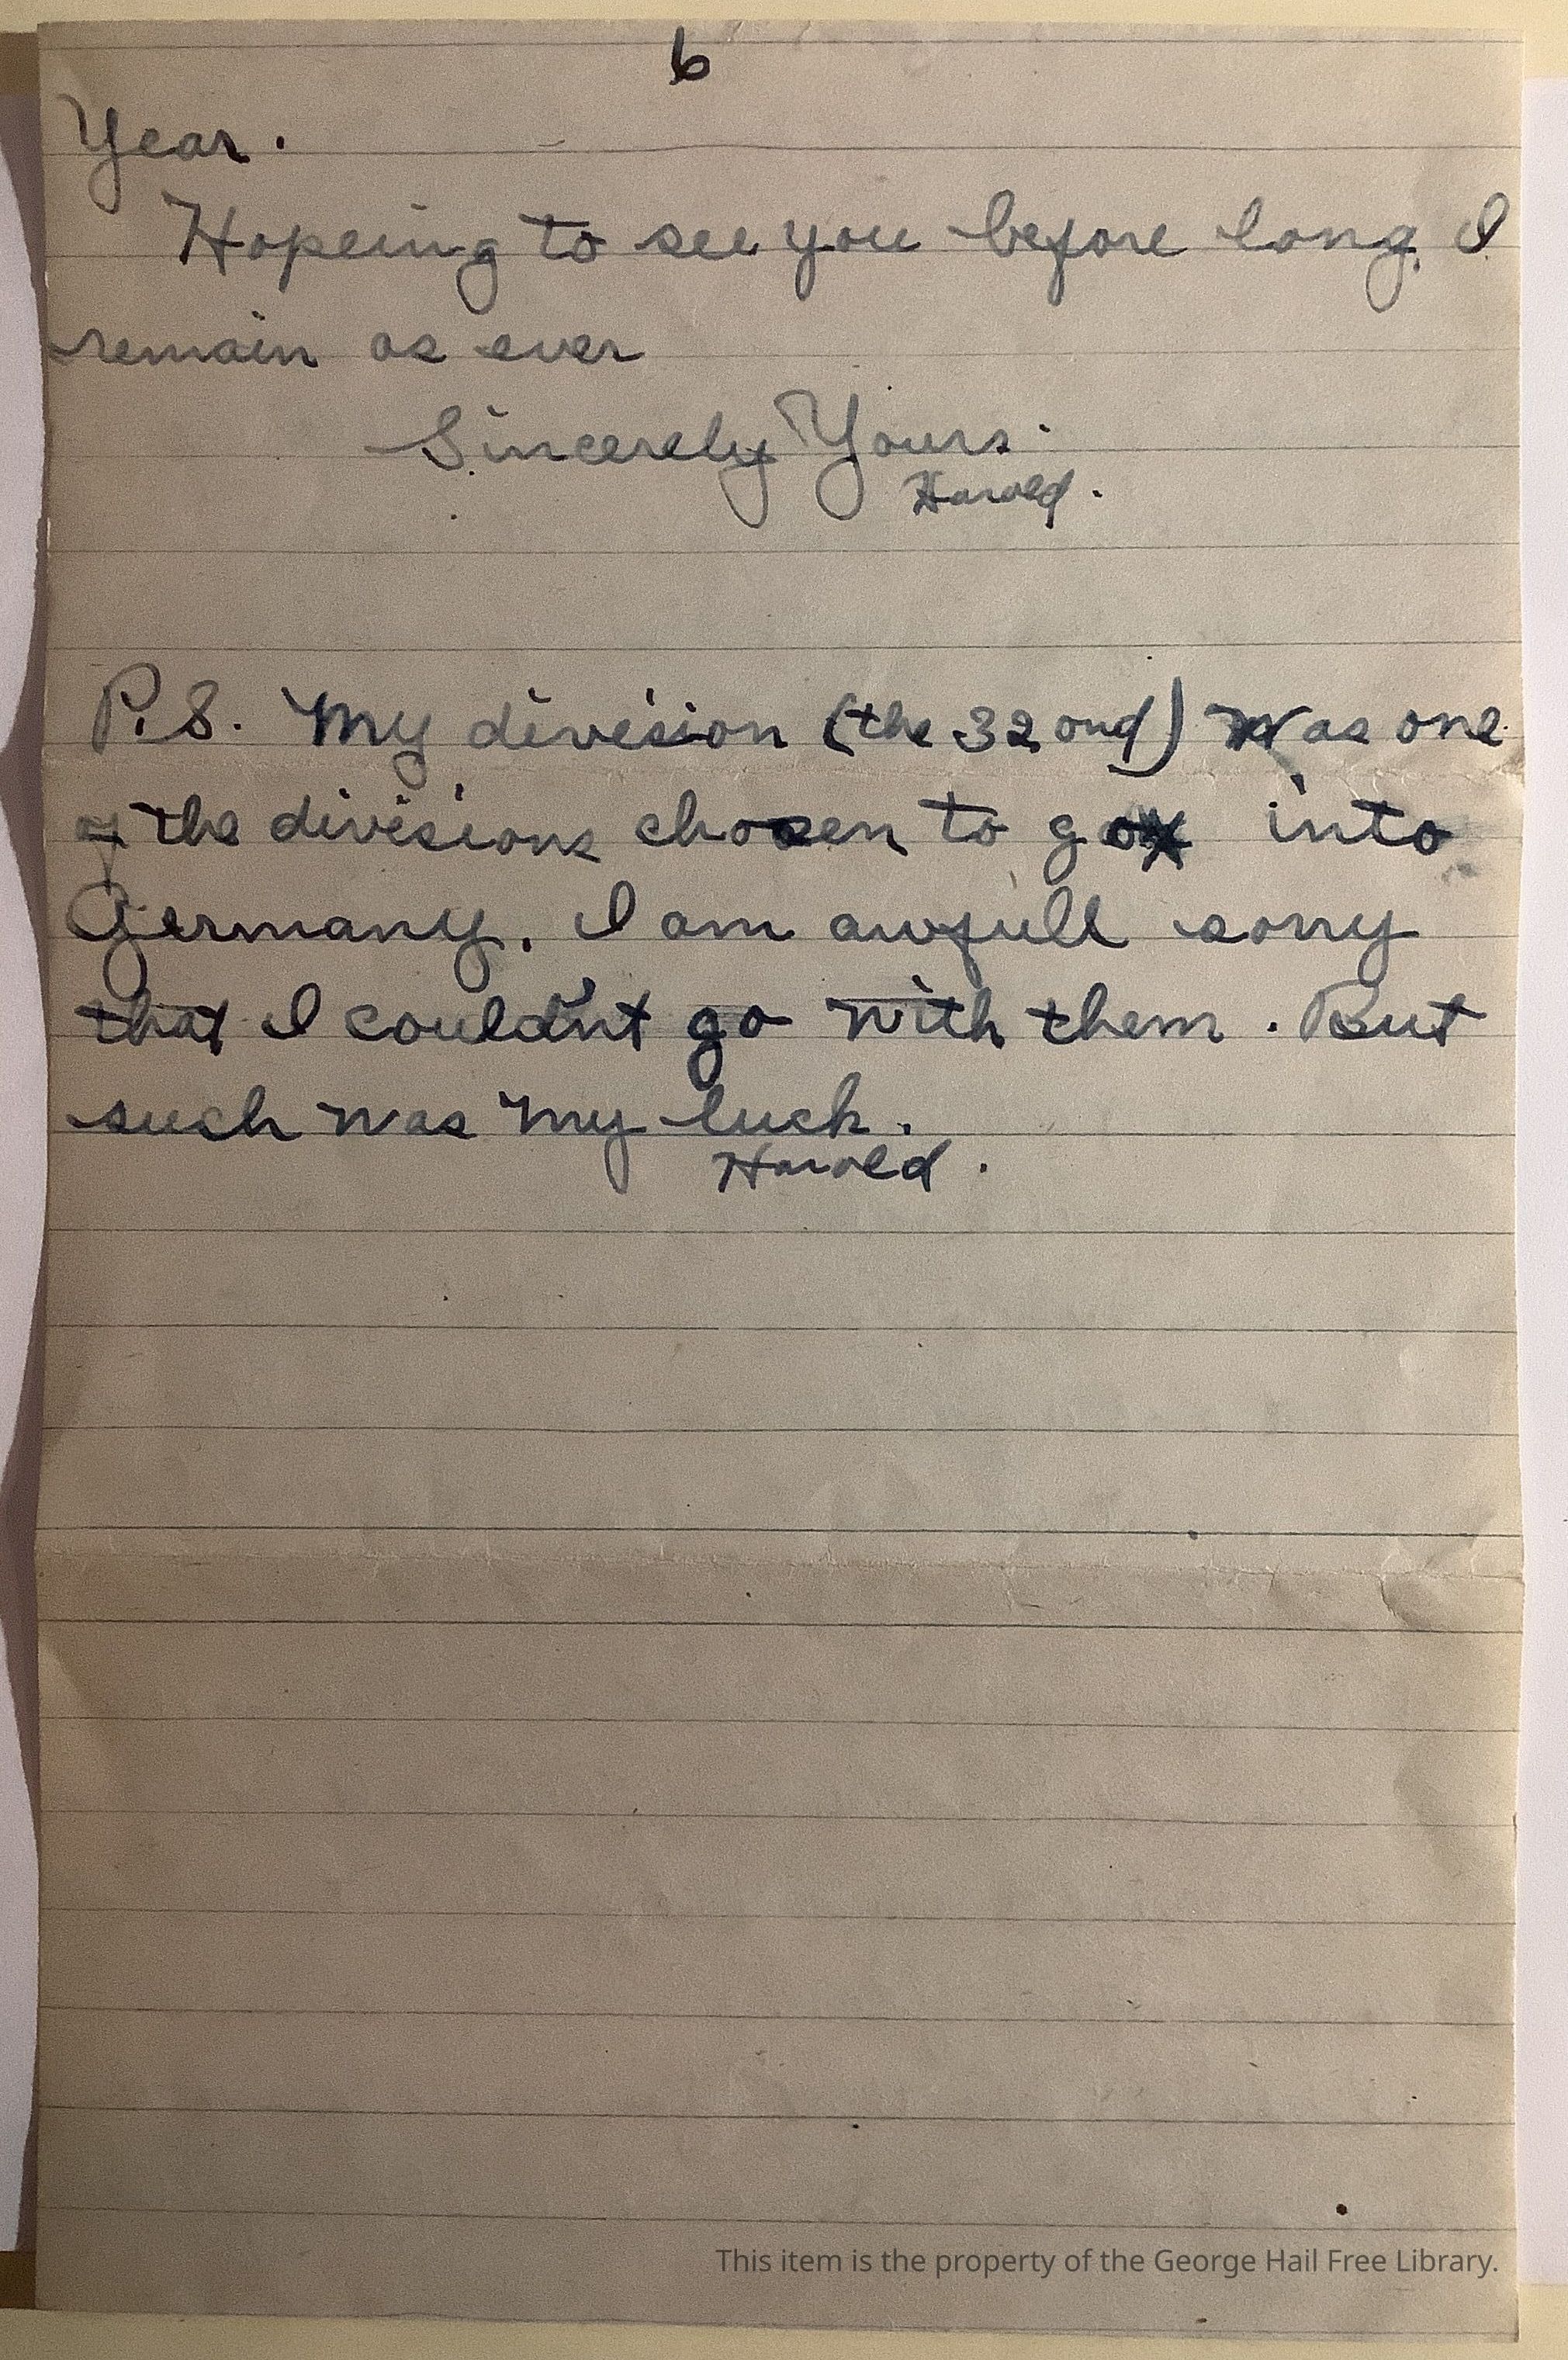 6
Year.
Hopeing to see you before long, I
remain as ever
Sincerely Yours.
Harold.
P.S. My division (the 32 ond) Was one
of the divisions chosen to go into
Germany. I am awfull sorry
that I couldn't go with them. But
such was my luck.
Harold.
This item is the property of the George Hail Free Library.